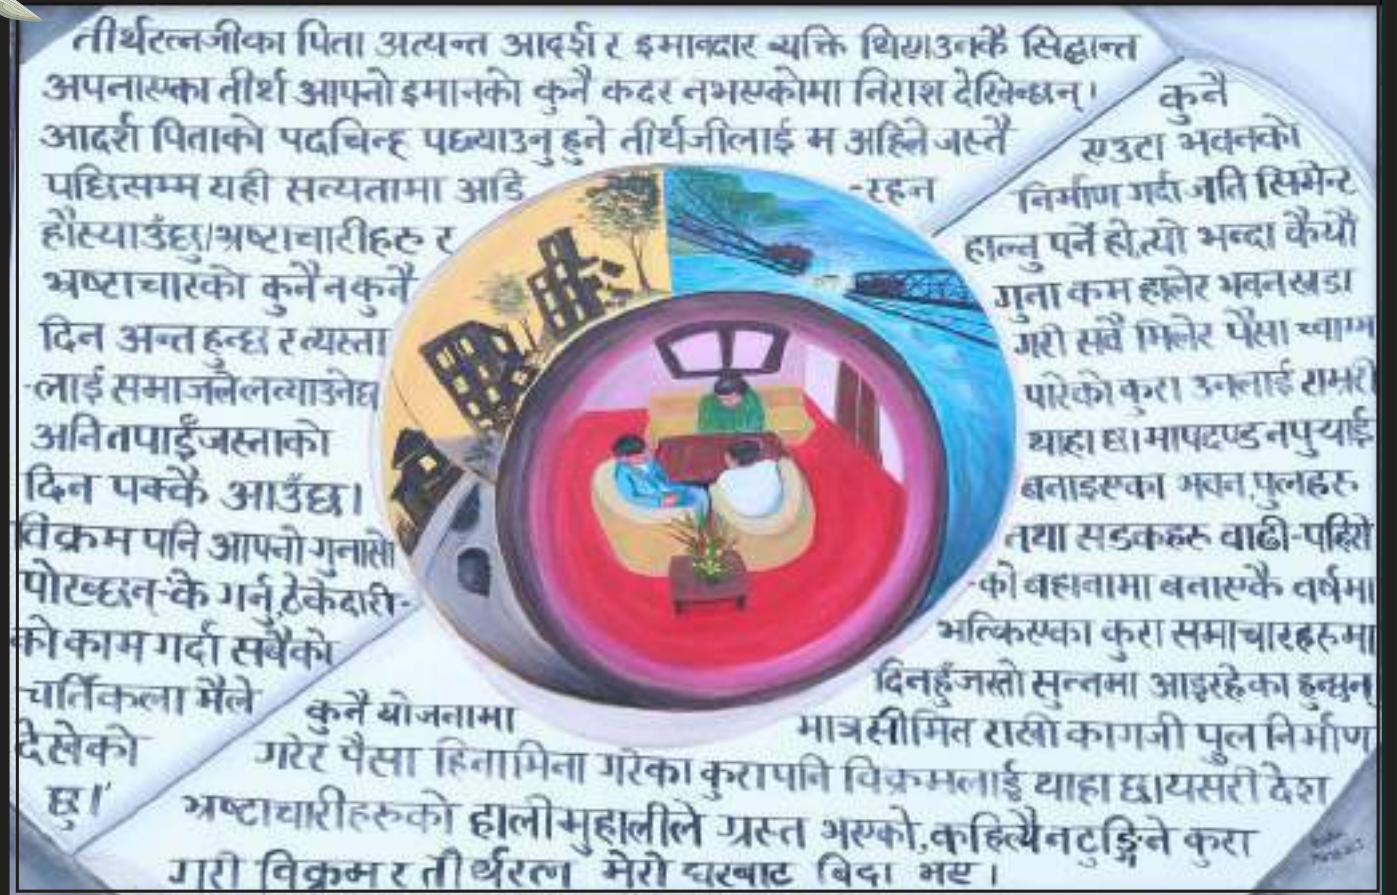 तीर्थरत्नजीका पिता अत्यन्त आदर्श र इमान्दार व्यक्ति थिए।उनकै सिद्धान्त
अपनाएका तीर्थ आफ्नो इमानको कुनै कदर नभएकोमा निराश देखिन्छन्।
आदर्श पिताको पदचिन्ह पछ्याउनु हुने तीर्थजीलाई म अहिले जस्तै
पछिसम्म यही सत्यतामा अडि -रहन
हौस्याउँछु।भ्रष्टाचारीहरु र
भ्रष्टाचारको कुनै न कुनै
दिन अन्त हुन्छ र त्यस्ता
-लाई समाजले लत्याउनेछ।
अनि तपाईँ जस्ताको
दिन पक्कै आउँछ।
विक्रम पनि आफ्नो गुनासो
पोख्छन्-'के गर्नु,ठेकेदारी-
को काम गर्दा सबैको
चर्तिकला मैले
देखेको
छु।'
कुनै
एउटा भवनको
निर्माण गर्दा जति सिमेन्ट
हाल्नु पर्ने हो,त्यो भन्दा कैयौ
गुना कम हालेर भवन खडा
गरी सवै मिलेर पैसा च्वाम्म
पारेको कुरा उनलाई राम्ररी
थाहा छ। मापदण्ड नपुर्‍याई
बनाइएका भवन,पुलहरु
तथा सडकहरु वाढी-पहिरो
-को वहानामा बनाएकै वर्षमा
भत्किएका कुरा समाचारहरुमा
दिनहुँजसो सुन्नमा आइरहेका हुन्छन्
कुनै योजनामा मात्र सीमित राखी कागजी पुल निर्माण
गरेर पैसा हिनामिना गरेका कुरा पनि विक्रमलाई थाहा छ।यसरी देश
भ्रष्टाचारीहरुको हालीमुहालीले ग्रस्त भएको,कहिल्यै नटुङ्गिने कुरा
गरी विक्रम र तीर्थरत्न मेरो घरबाट बिदा भए।